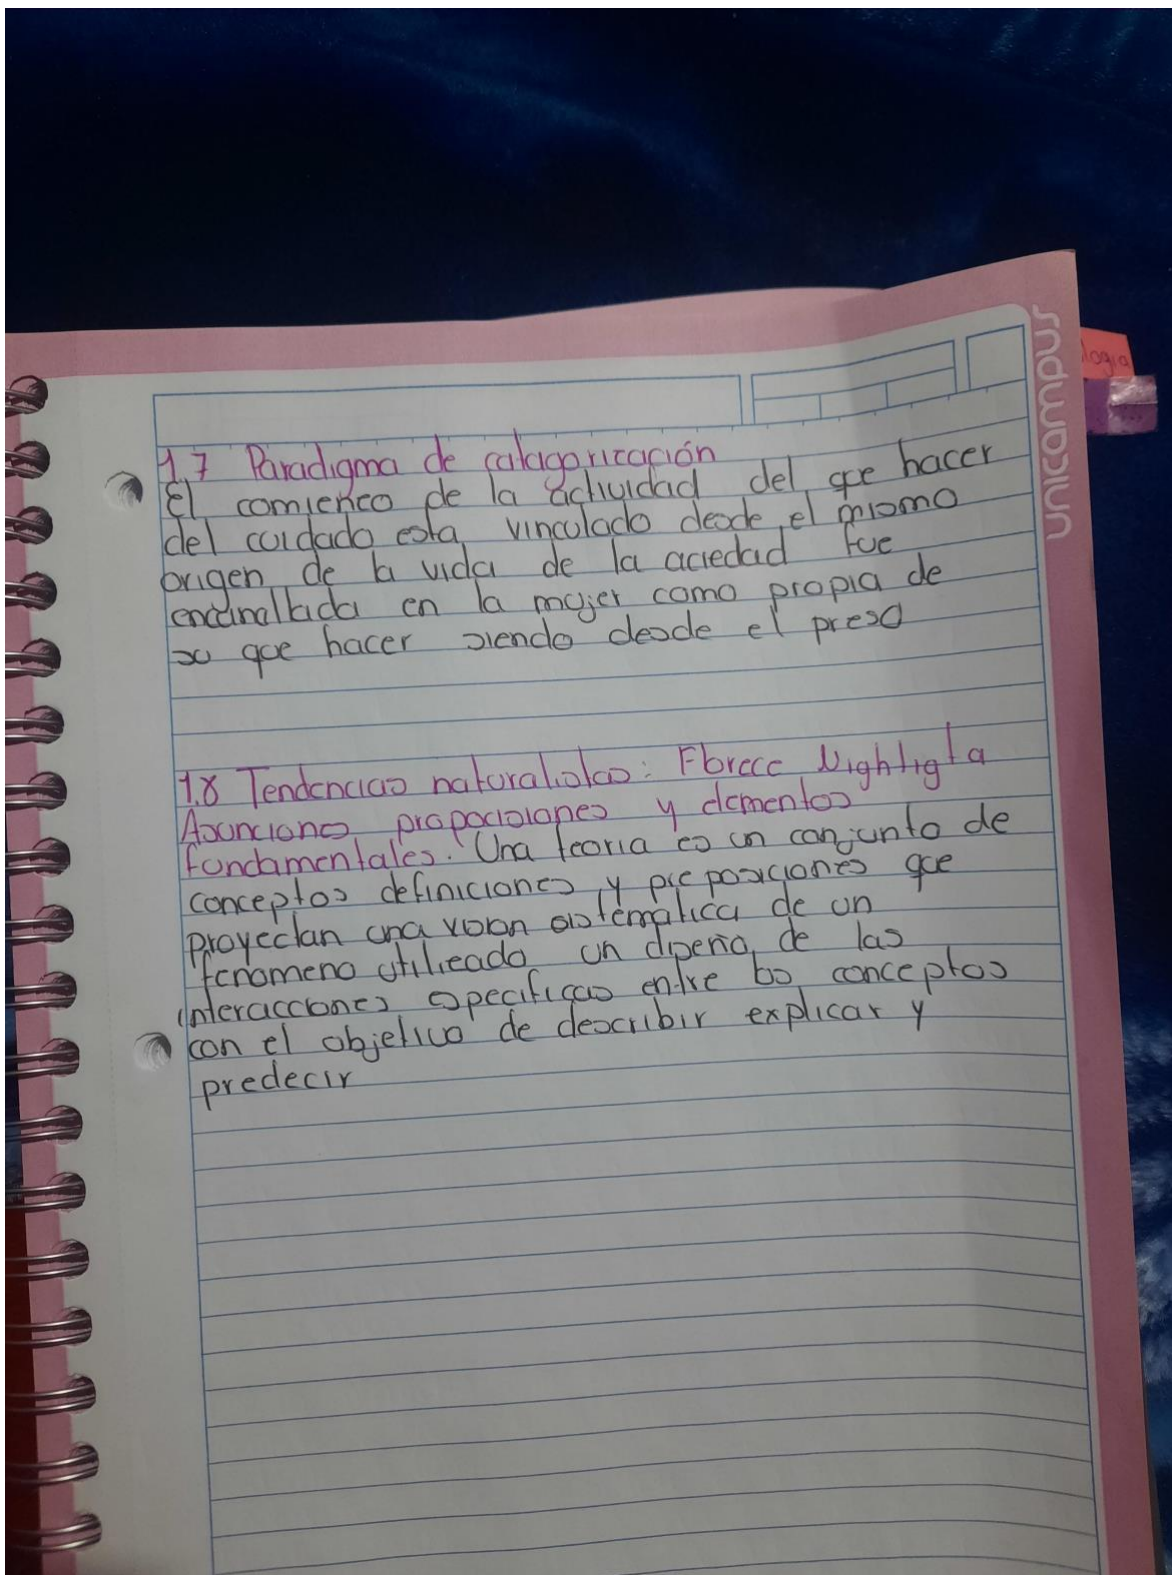 1.7 Paradigma de catagoricación
El comienco de la actividad del que hacer
del cuidado esta vinculado desde el mismo
origen de la vida de la aciedad fue
en la mujer como propia de
su que hacer siendo desde el preso
1.8 Tendencias naturalistas: Florece Nightigta
Asunciones proposiciones y elementos
fundamentales. Una teoria es un conjunto de
conceptos definiciones y preposiciones que
proyectan una vision sistematica de un
fenomeno utilicado un diseño de las
interacciones especificas entre los conceptos
con el objetivo de describir explicar y
predecir
unicampus
logia